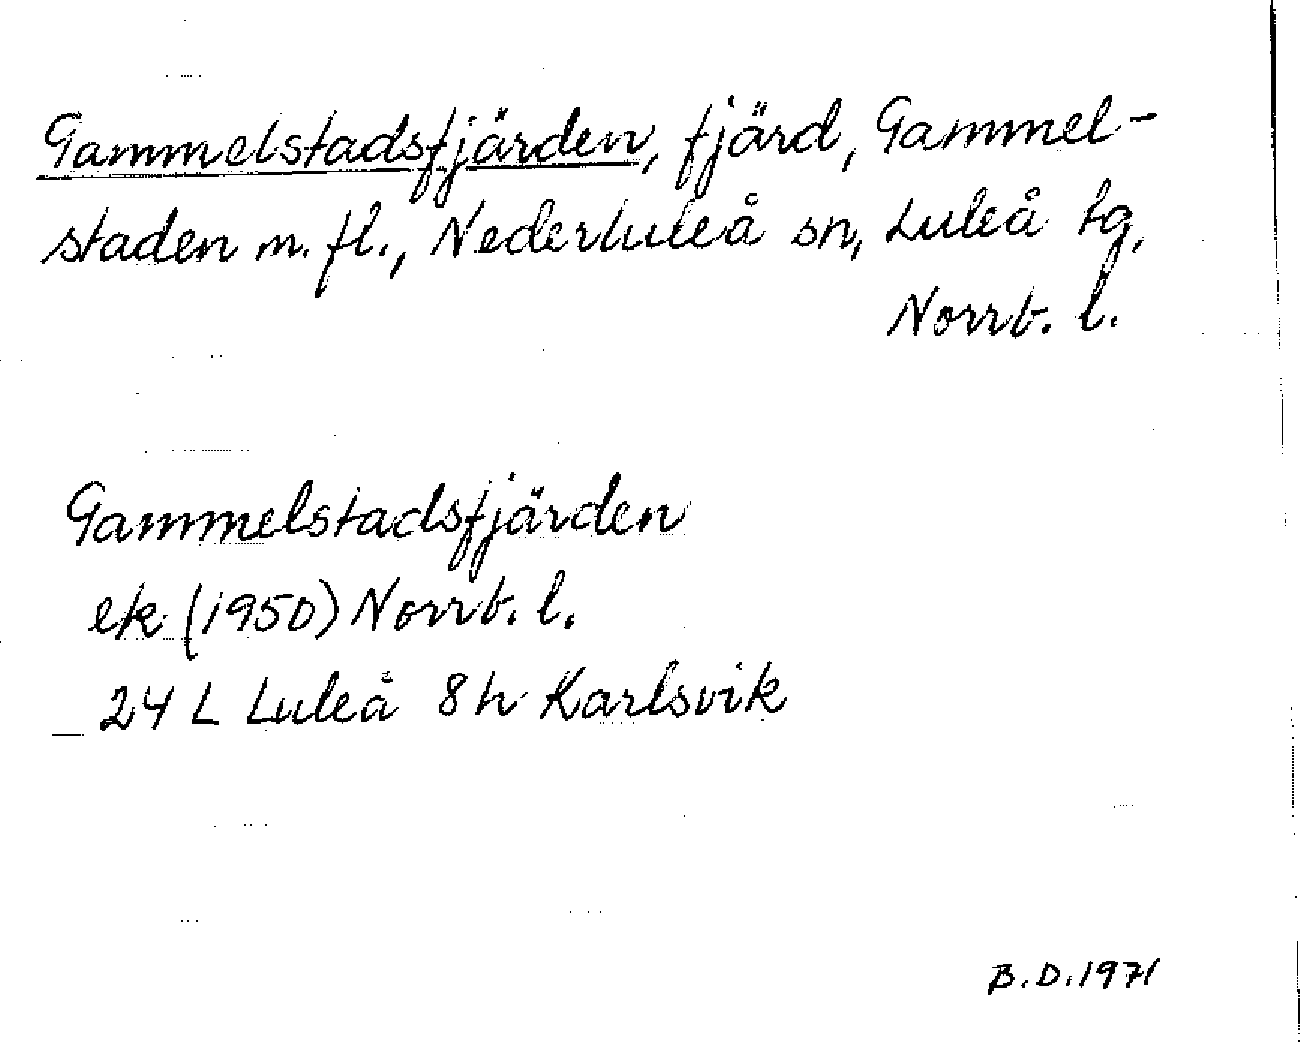 Gammelstadsfjärden, fjärd, Gammel-
staden m. fl., Nederluleå sn, Luleå tg,
Norrb. l.
Gammelstadsfjärden
ek (1950) Norrb. l.
24 L Luleå 8h Karlsvik
B.D. 1971